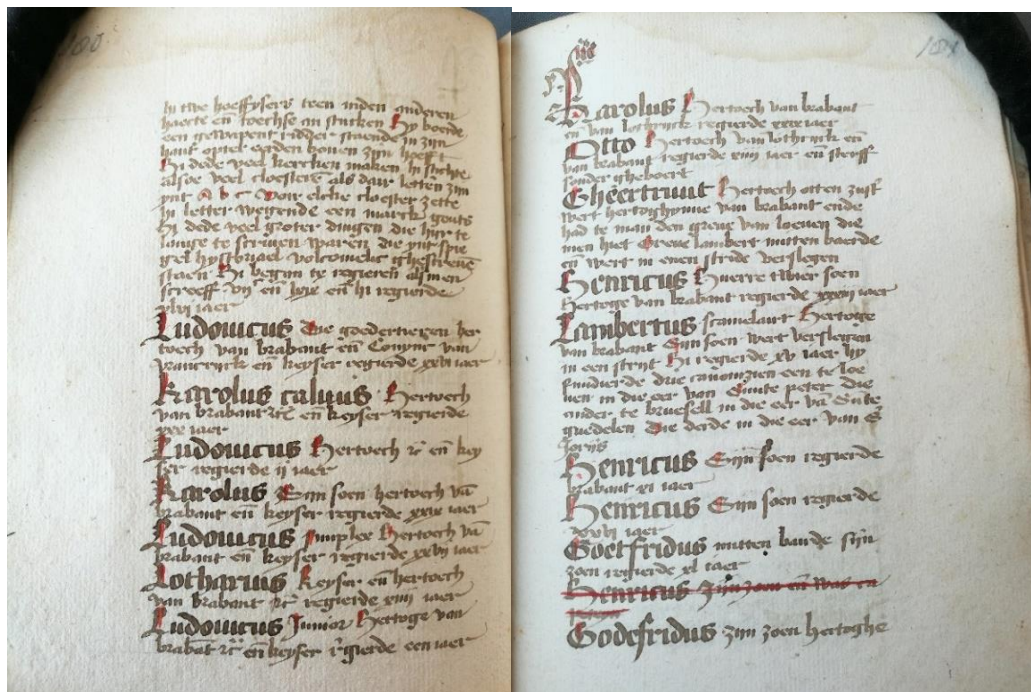 180
hi twe hoeffysers teen inden anderen
haecte en̄ toechse an stucken Hy boerde
een gewapent ridder staende in zijn
hant optel eerden bouen zijn hoeft
Hi dede veel kercken maken hi stichte
alsoe veel cloesters als daer letteren zijn
int A b c Voir elcke cloester zette
hi letter wegende een marck gouts
Hi dede veel groter dingen die hijr te
lange te scriuen waren die int spie
gel hystoriael volcomelic ghescreuē
staen Hi began te regieren alsmen
screeff vijᶜ en̄ lxix en̄ hi regierde
xlvi iaer
Ludouicus Die goedertieren her
toech van brabant en̄ Conync van
vrancryck en̄ keyser regierde xxvi iaer
Karolus caluus Hertoech
van brabant etc̄ en̄ keyser regierde
xxx iaer
Ludouicus Hertoech etc̄ en̄ key
ser regierde ij iaer
Karolus Sijn soen hertoech vā
brabant en̄ keyser regierde xxix iaer
Ludouicus simplex Hertoech vā
brabant en̄ keyser regierde xxvij iaer
Lotharius Keyser en̄ hertoech
van brabant etc̄ regierde xiiij iaer
Ludouicus Junior Hertoge van
brabāt etc̄ en̄ keyser regierde een iaer
181
Karolus Hertoech van brabant
en̄ van lothryck regierde xxx iaer
Otto Hertoech van lothryck en̄
van brabant regierde xiiij iaer en̄ sterff
sonder gheboert
Gheertruut Hertoch otten zust̄
wert hertoghynne van brabant ende
had te man den greue van loeuen die
men hiet Greue lambert mitten baerde
en̄ wert in enen stride verslegen
Henricus Huerre twier soen
Hertoge van brabant regierde xxxvij iaer
Lambertus scamelairt Hertoge
van brabant Sijn soen wert verslegen
in een strijt Hi regierde xv iaer hy
fundierde drie canonizien een te loe
uen in die eer van Sunte peter die
ander te bruesell in die eer vā Sūte
guedelen Die derde in die eer van S̄
Jorijs
Henricus Sijn soen regierde
brabant xi iaer
Henricus Sijn soen regierde
xxvij iaer
Goetfridus mitten baerde sijn
zoen regierde xl iaer
Henricus Zijn zoen en̄ was
Godefridus zijn zoen hertoghe